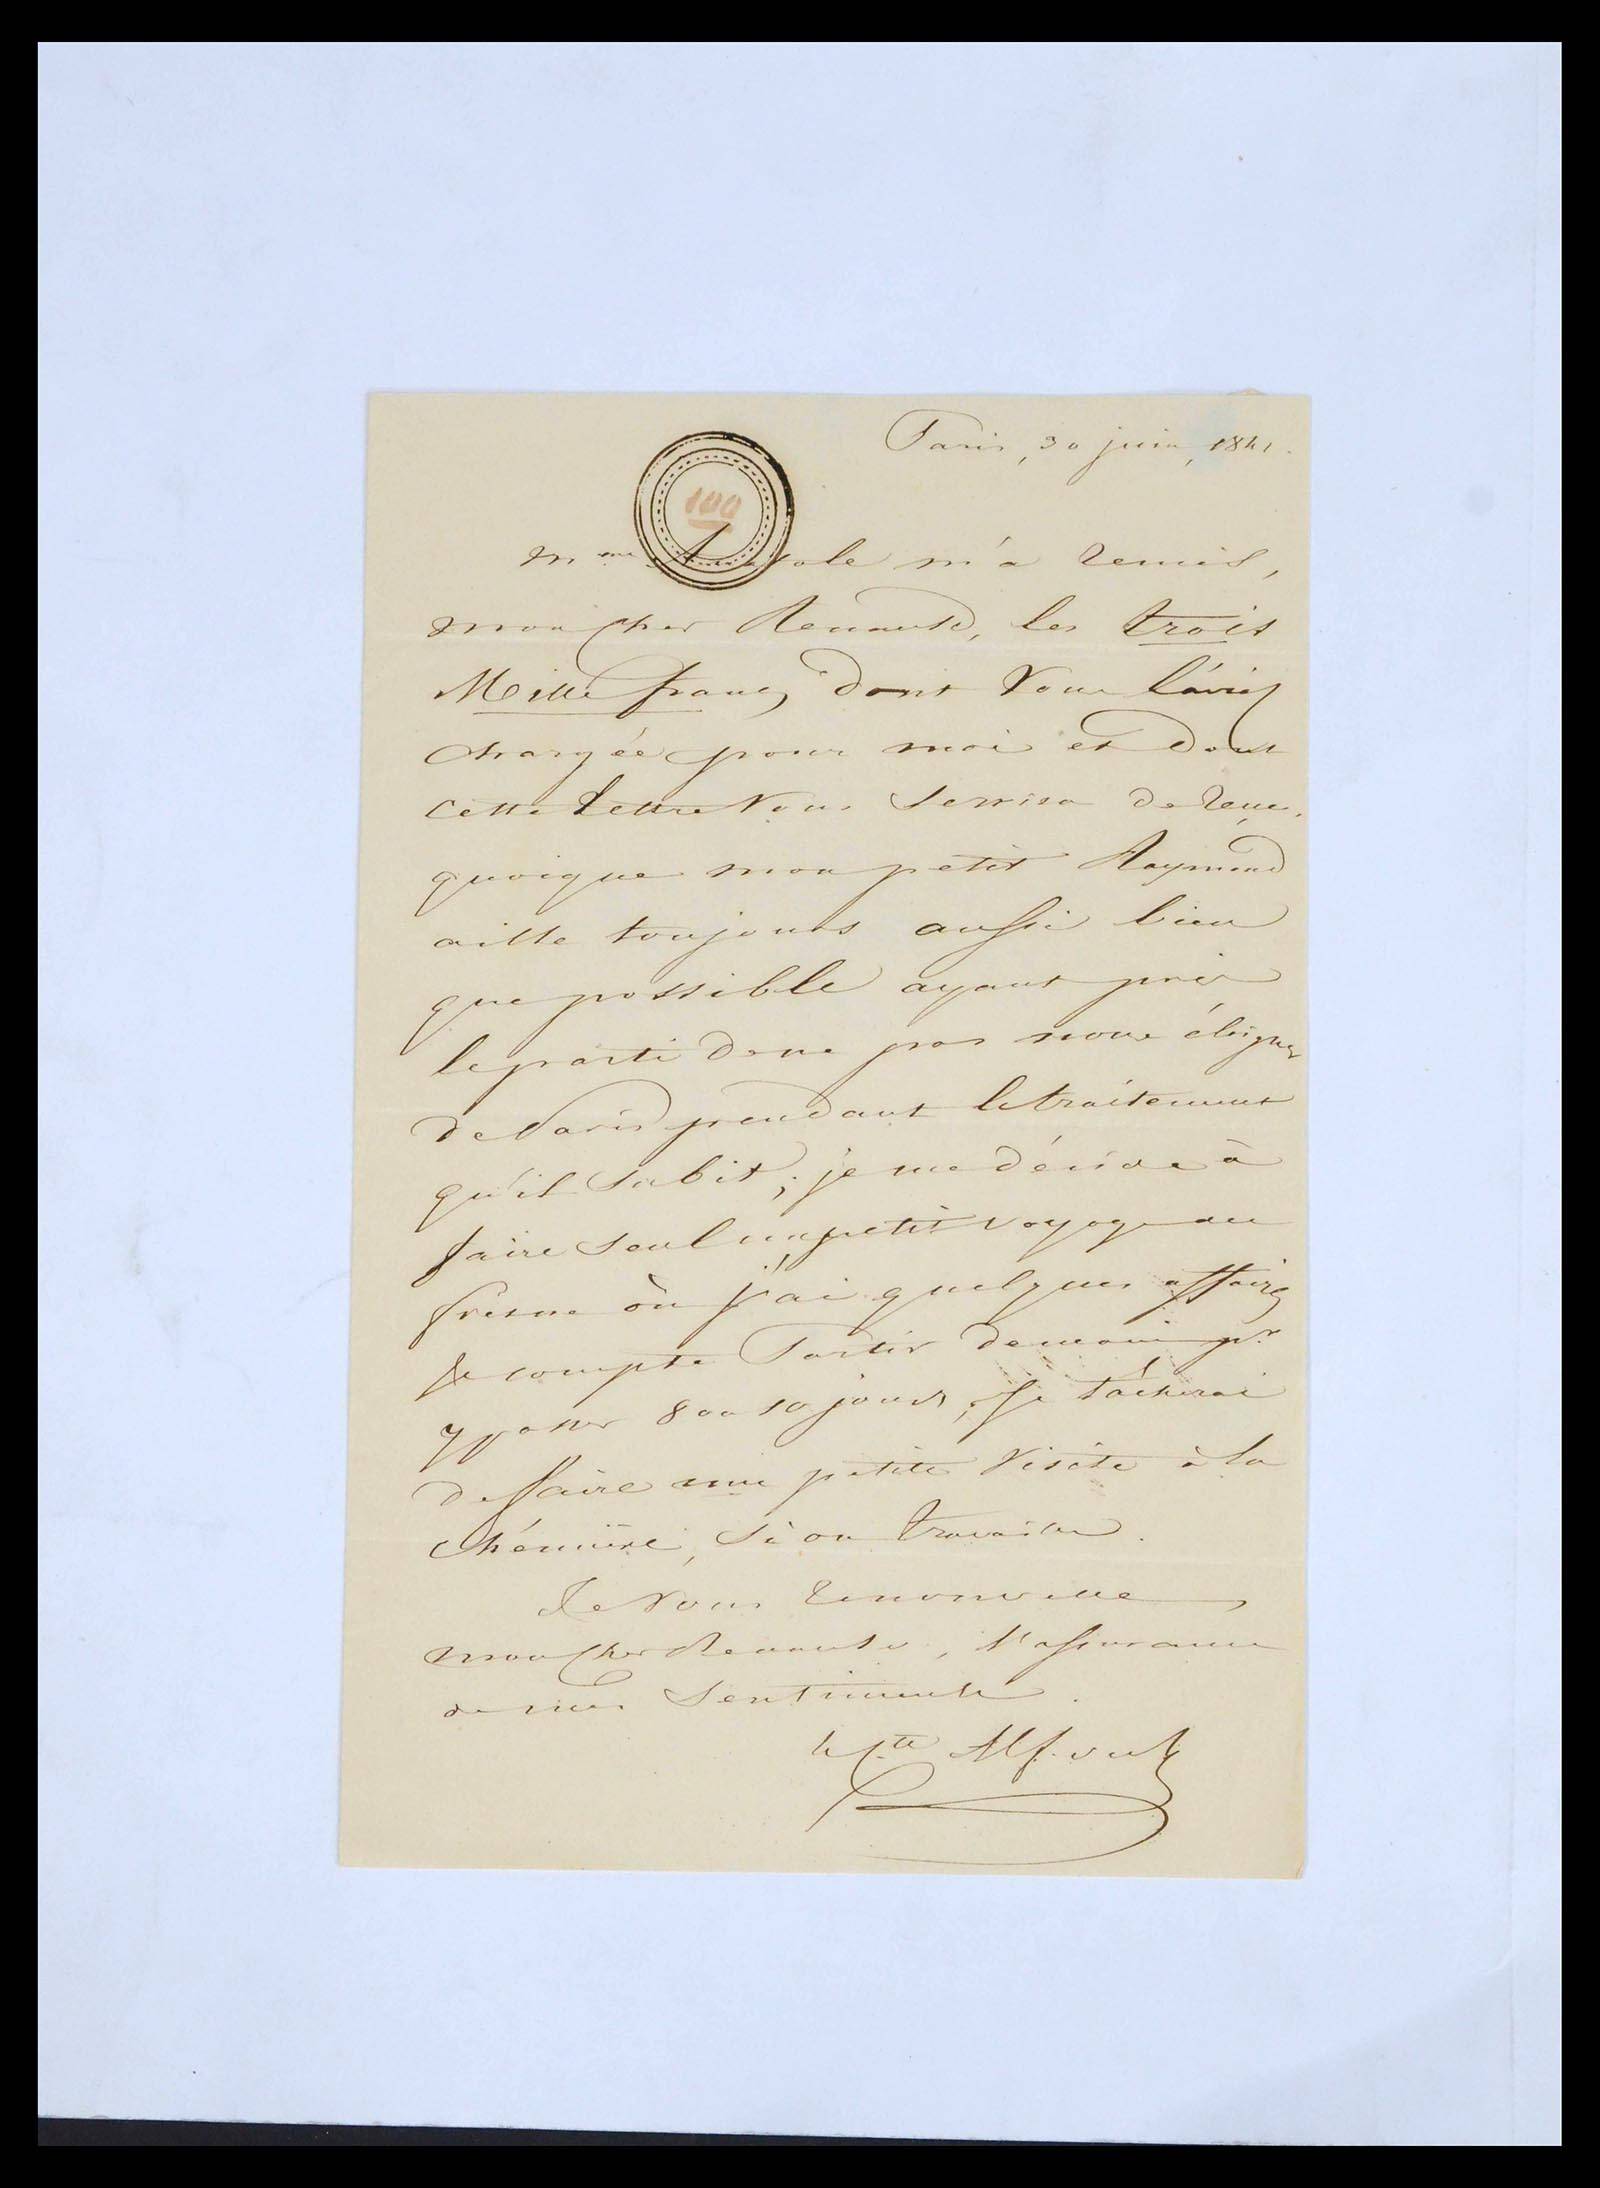 Paris, 30 juin, 1841.
100
Mme Anatole m'a remis,
mon cher Renault, les trois
Mille francs dont Vous l'aviez
chargée pour moi et dont
cette lettre Vous servira de recu.
quoique mon petit Raymond
aille toujours aussi bien
que possible ayant pris
le parti de ne pas nous éloigner
de Paris pendant le traitement
qu'il subit, je me décide à
faire seul un petit voyage au
fresne où j'ai quelques affaires
Je compte Partir demain pr
y passer 8 ou 10 jours, Je tâcherai
de faire une petite Visite à la
si on travaille.
Je Vous renouvelle,
mon cher Renault, l'assurance
de mes Sentiments.